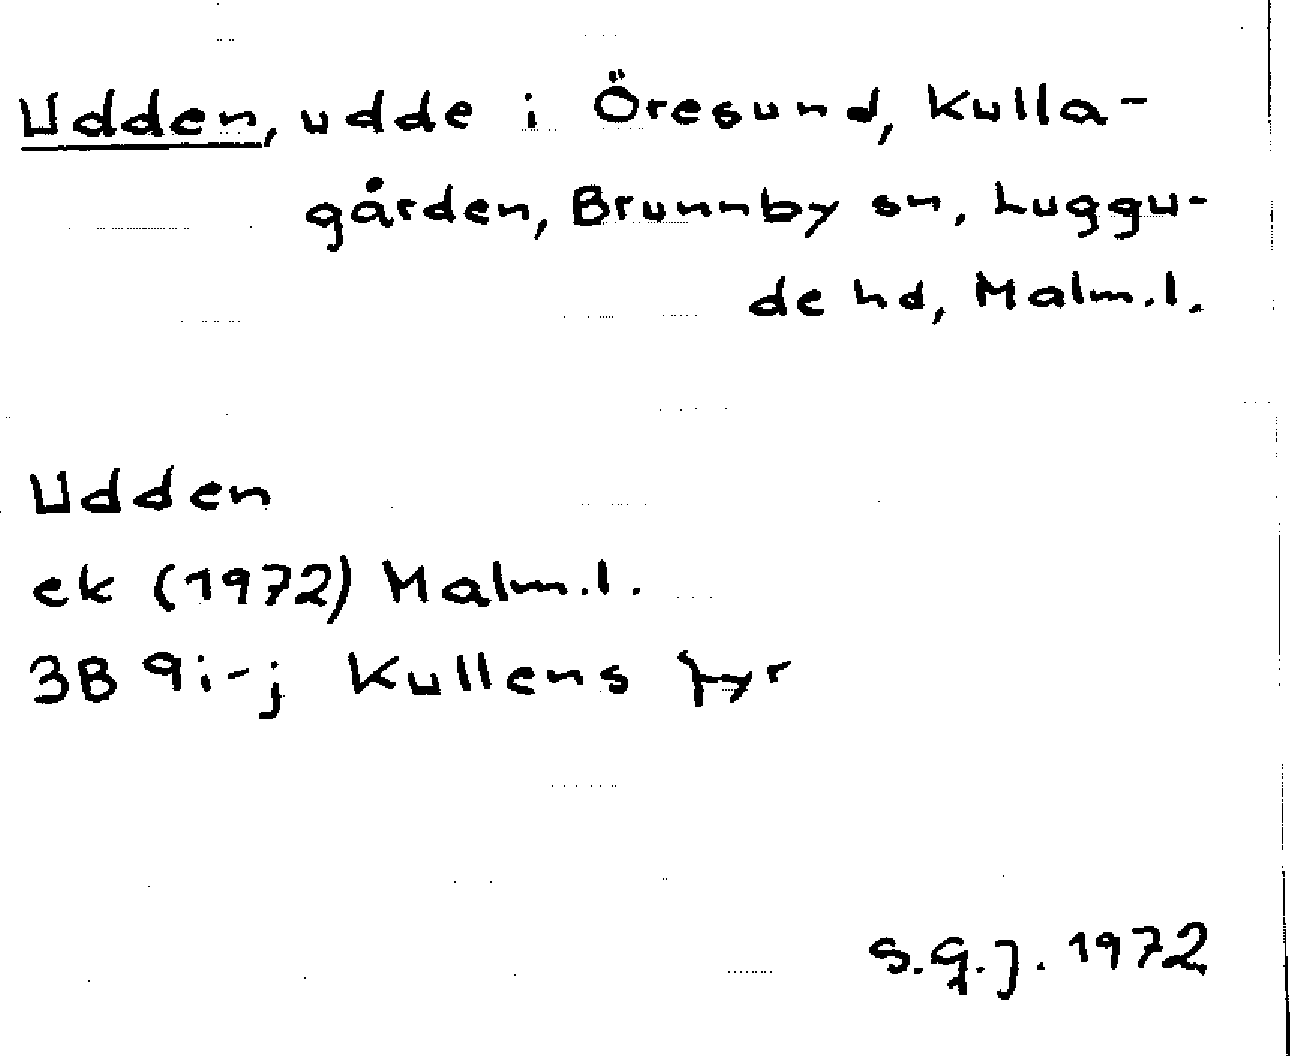 Udden, udde i Öresund, Kulla-
gården, Brunnby sn, Luggu-
de hd, Malm.l.
Udden
ek (1972) Malm.l.
3B 9i-j Kullens fyr
S.G.J. 1972